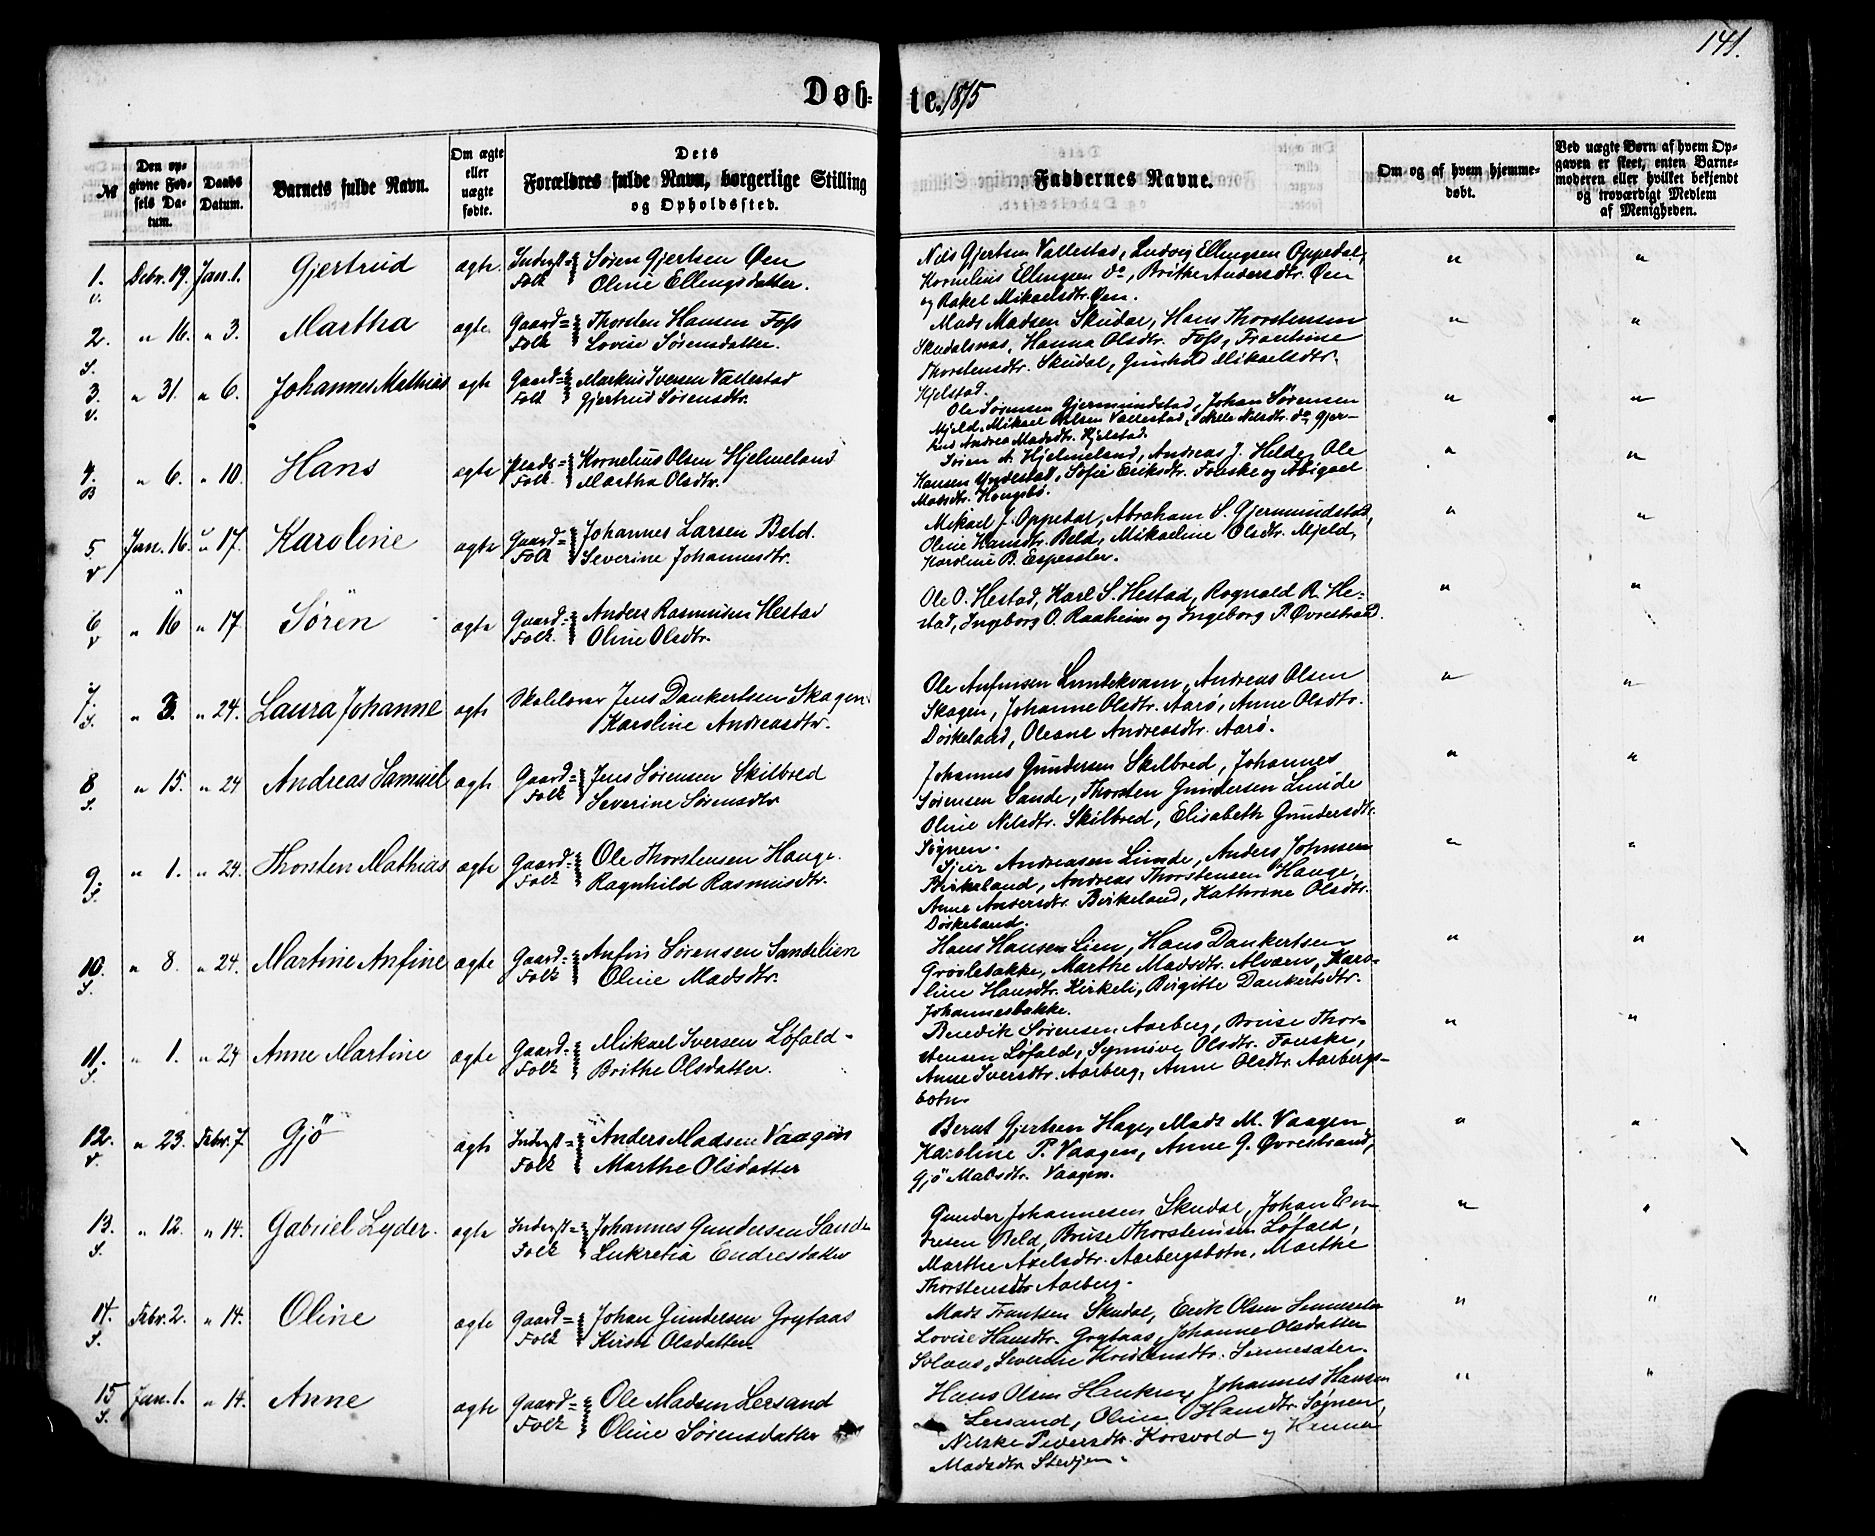 141.
Døb- te. 1875
№
Den opgivne Fødsels Datum.
Daabs Datum.
Barnets fulde Navn.
Om ægte eller uægte fødte.
Dets Forældres fulde Navn, borgerlige Stilling og Opholdssted.
Faddernes Navne.
Om og af hvem hjemmedøbt.
Ved uægte Børn af hvem Opgaven er skeet, enten Barnemoderen eller hvilket bekjendt og troværdigt Medlem af Menigheden.
1. V. Debr. 19. Jan. 1. Gjertrud ægte Inderst= Folk Søren Gjertsen Øen
Oline Ellingsdatter.
Nils Gjertsen Vallestad, Ludvig Ellingsen Oppedal,
Kornelius Ellingsen do, Brithe Andersdtr. Øen
og Rakel Mikaelsdtr. Øen.
2. S. " 16. " 3. Martha ægte Gaard= Folk Thorsten Hansen Foss
Lovise Sørensdatter.
Mads Madsen Skudal, Hans Thorstensen
Skudalsnæs, Hanna Olsdtr. Foss, Frantine
Thorstensdtr. Skudal, Gunhild Mikaelsdtr.
Hjelstad.
3. V. " 31. " 6. Johannes Mathias ægte Gaard= Folk Markus Iversen Vallestad
Gjertrud Sørensdtr.
Ole Sørensen Gjermundstad, Johan Sørensen
Mjeld, Mikael Nilsen Vallestad, Nille Nilsdtr. do, Gjer-
Andrea Madsdtr. Hjelstad.
4. B " 6. " 10. Hans ægte Plads= Folk Kornelius Olsen Hjelmeland
Martha Olsdtr.
Søren A. Hjelmeland, Andreas J. Helde, Ole
Hansen Yndestad, Sofie Eriksdtr. Fonske og Abigael
Madsdtr. Kongsbø.
5 V Jan. 16. " 17. Karoline ægte Gaard= Folk Johannes Larsen Beld.
Severine Johannesdtr.
Mikael J. Oppedal, Abraham S. Gjermundstad,
Oline Hansdtr. Beld, Mikaeline Olsdtr. Mjeld,
Karoline B. Espesæter.
6 V " 16 " 17. Søren ægte Gaard= Folk Anders Rasmusen Hestad
Oline Olsdtr.
Ole O. Hestad, Karl S. Hestad, Rognald R. He-
stad, Ingeborg O. Raaheim og Ingeborg P. Øvrestrand.
7. S. " 3. " 24. Laura Johanne ægte Skolelærer Jens Dankertsen Skagen
Karoline Andreasdtr.
Ole Anfinsen Lundekvam, Andreas Olsen
Skagen, Johanne Olsdtr. Aarø, Anne Olsdtr.
Døskeland, Oleane Andreasdtr. Aarø.
8 S. " 15. " 24 Andreas Samuel ægte Gaard= Folk Jens Sørensen Skilbred
Severine Sørensdtr
Johannes Gundersen Skilbred, Johannes
Sørensen Sande, Thorsten Gundersen Lunde
Oline Nilsdtr. Skilbred, Elisabeth Gundersdtr.
Søgnen.
9. S. " 1. " 24. Thorsten Mathias ægte Gaard= Folk Ole Thorstensen Hauge.
Ragnhild Rasmusdtr.
Sjur Andreasen Lunde, Anders Johnsen
Birkeland, Andreas Thorstensen Hauge,
Anne Andersdtr. Birkeland, Kathrine Olsdtr.
Døskeland.
10. S. " 8. " 24. Martine Anfine ægte Gaard= Folk Anfin Sørensen Sandelien
Oline Madsdtr.
Hans Hansen Lien, Hans Dankertsen
Grøslebakke, Marthe Madsdtr. Alværn, Karo-
line Hansdtr. Kirkeli, Birgitte Dankertsdtr.
Johannesbakke.
11. S. " 1. " 24 Anne Martine ægte Gaard= Folk Mikael Iversen Løfald
Brithe Olsdatter.
Benedik Sørensen Aarberg, Bruse Thor-
stensen Løfald, Synnøve Olsdtr. Fonske,
Anne Iversdtr. Aarberg, Anne Olsdtr. Aarbergs-
botn.
12. V. " 23. Febr. 7. Gjø ægte Inderst= Folk Anders Madsen Vaagen
Marthe Olsdatter
Bernt Gjertsen Hage, Mads M. Vaagen,
Karoline P. Vaagen, Anne G. Øvrestrand,
Gjø Madsdtr. Vaagen.
13. S. " 12. " 14. Gabriel Lyder. ægte Inderst= Folk Johannes Gundersen Sande
Lukretia Endresdatter
Gunder Johannesen Skudal, Johan En-
dresen Beld, Bruse Thorstensen Løfald,
Marthe Axelsdtr. Aarbergsbotn, Marthe
Thorstensdtr Aarberg.
14. S. Febr. 2. " 14. Oline ægte Gaard= Folk Johan Gundersen Grytaas
Kirsti Olsdatter
Mads Frantsen Skudal, Erik Olsen Sinnesæter
Lovise Hansdtr. Grytaas, Johanne Olsdatter
Solaas, Severine Sinnesæter.
15 S. Jan. 1. " 14. Anne ægte Gaard= Folk Ole Madsen Lersand
Oline Sørensdatter
Hans Olsen Haukøy, Johannes Hansen
Lersand, Oline Hansdtr. Søgnen,
Nilske Pedersdtr. Korsvold og Henne
Madsdtr. Stevjen.